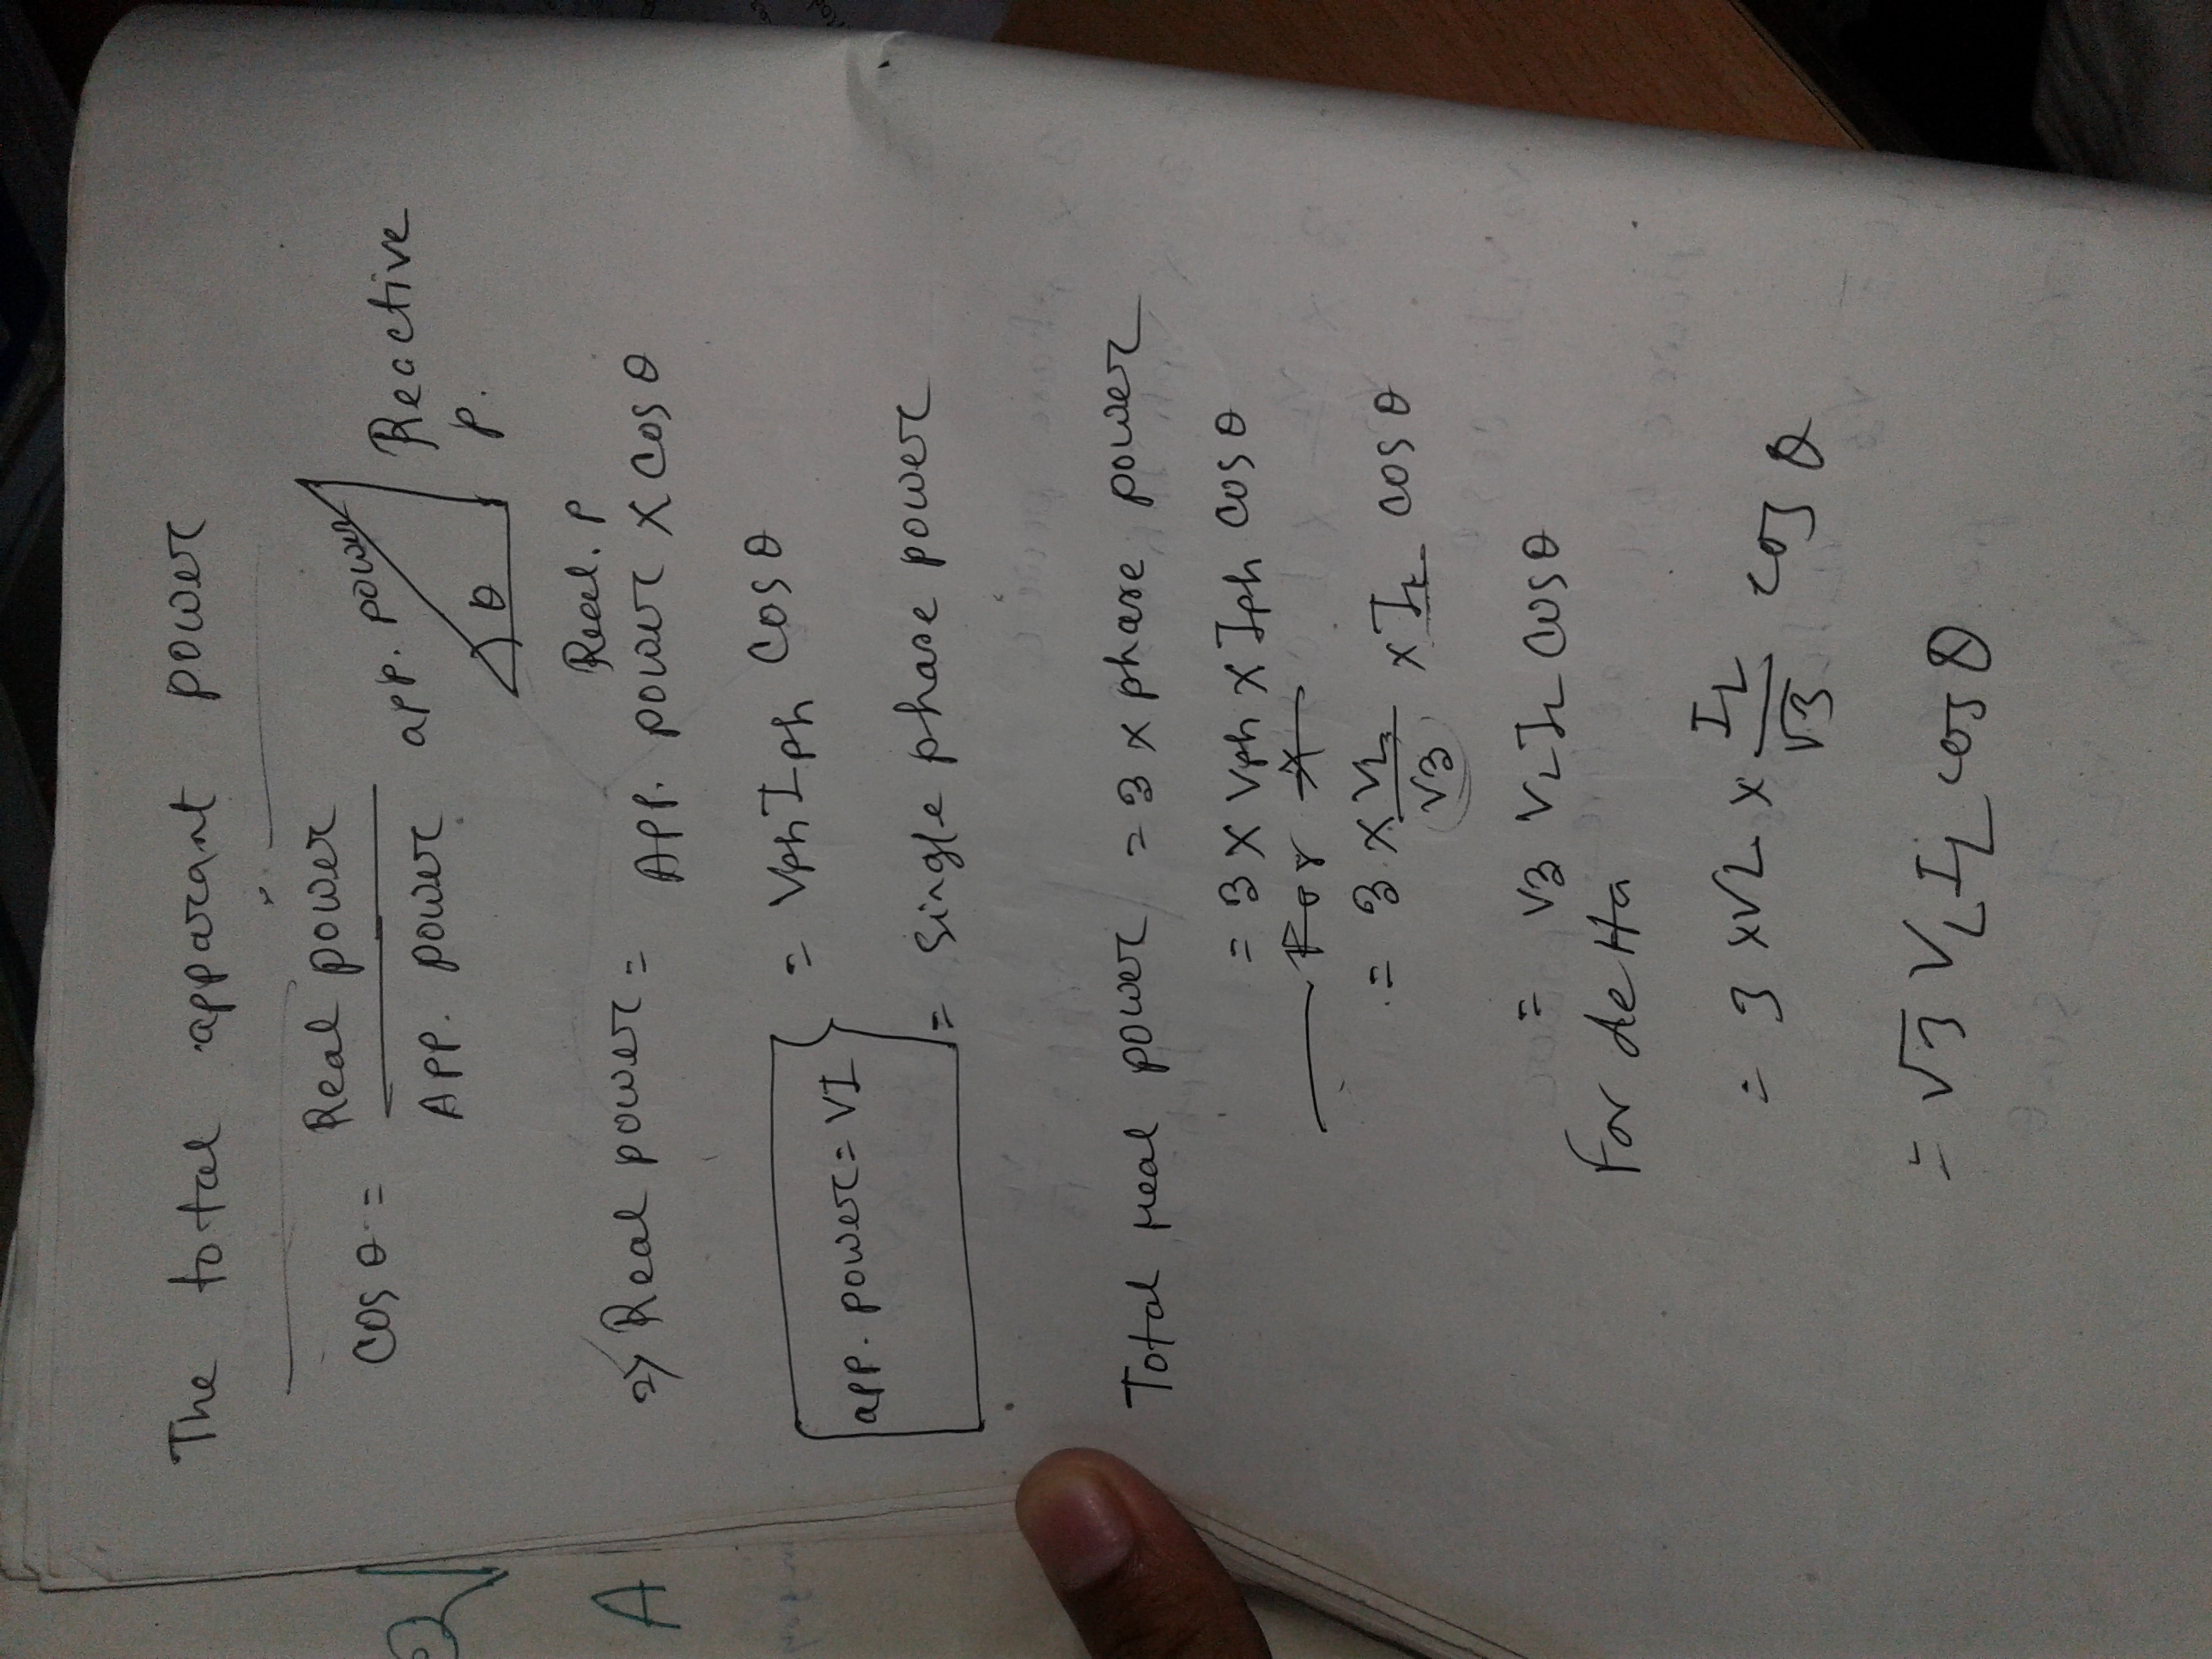 The total apparant power
cos θ = Real power / App. power
app. power
Reactive
P.
θ
Real. P
=> Real power = App. power × cos θ
= Vph Iph cos θ
app. power = VI
= single phase power
Total real power = 3 × phase power
= 3 × Vph × Iph cos θ
For
= 3 × VL/√3 × IL cos θ
= √3 VL IL cos θ
For delta
= 3 × VL × IL/√3 cos θ
= √3 VL IL cos θ
A